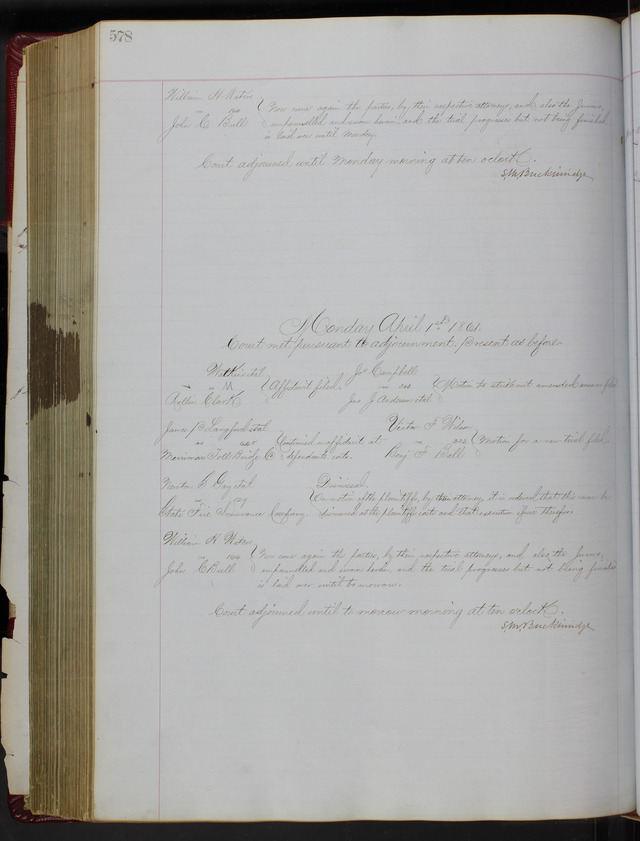 578
William H
vs
John C Bull
Now come again the parties, by their respective attorneys, and also the Jurors,
empannelled and sworn herein and the trial progresses but not being finished
is laid over until Monday.
Court adjourned until Monday morning at ten oclock.
S. M. Breckinridge
Monday April 1st 1861.
Court met pursuant to adjournment. Present as before.
et al
Clark
Affidavit filed.
Jas Campbell
vs
Jas J Anderson et al
Motion to strike out amended answer filed
James B Langford et al
vs
Merriman Toll Bridge Co
Continued on affidavit at
defendants costs.
F
vs
Benj F Bull
Motion for a new trial filed.
Newton G et al
vs
State Fire Insurance Company
Dismissed
On motion of the plaintiffs, by their attorney, it is ordered that this cause be
dismissed at the plaintiffs costs and that execution issue therefor.
William H
vs
John C Bull
Now come again the parties, by their respective attorneys, and also the Jurors,
empannelled and sworn herein, and the trial progresses but not being finished
is laid over until to morrow.
Court adjourned until to morrow morning at ten oclock.
S. M. Breckinridge